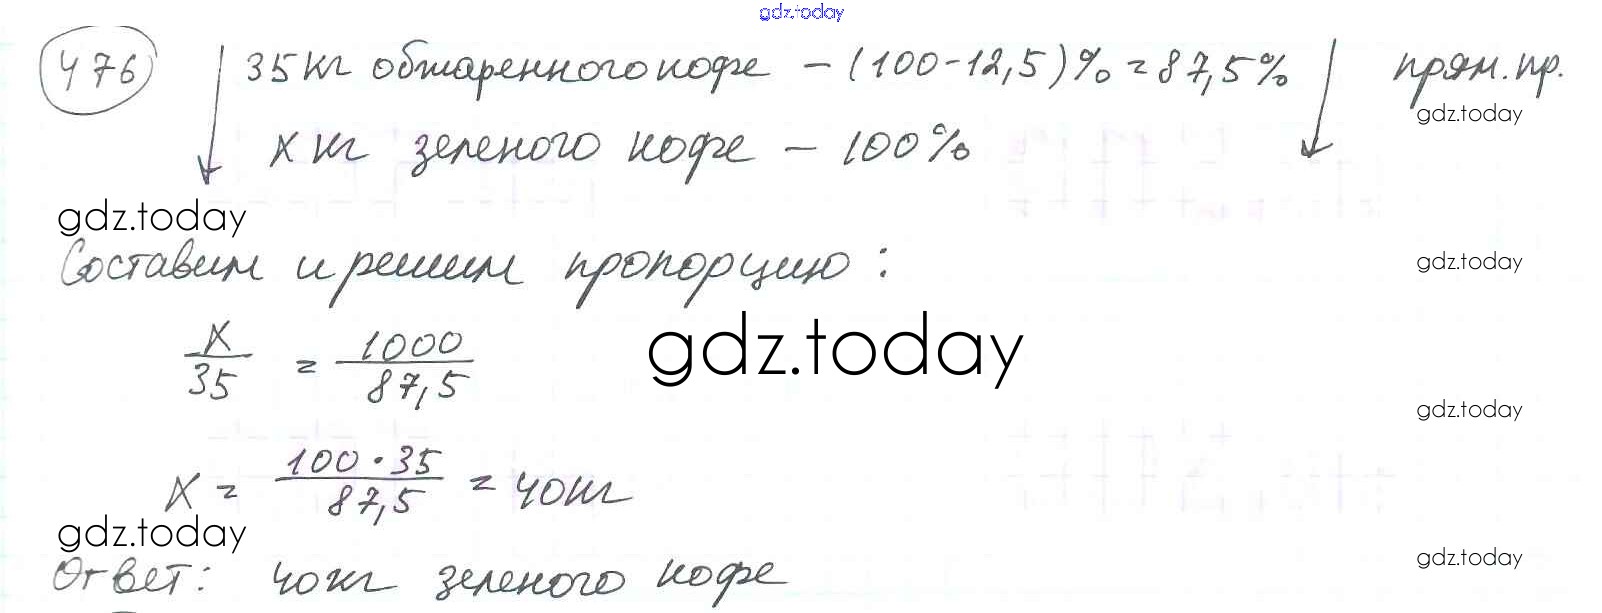 gdz.today
476 35 кг обжаренного кофе - (100-12,5)% = 87,5% прям. пр.
gdz.today
x кг зеленого кофе - 100%
gdz.today
Составим и решим пропорцию:
gdz.today
x/35 = 1000/87,5
gdz.today
gdz.today
x = 100·35/87,5 = 40кг
gdz.today
gdz.today
Ответ: 40кг зеленого кофе